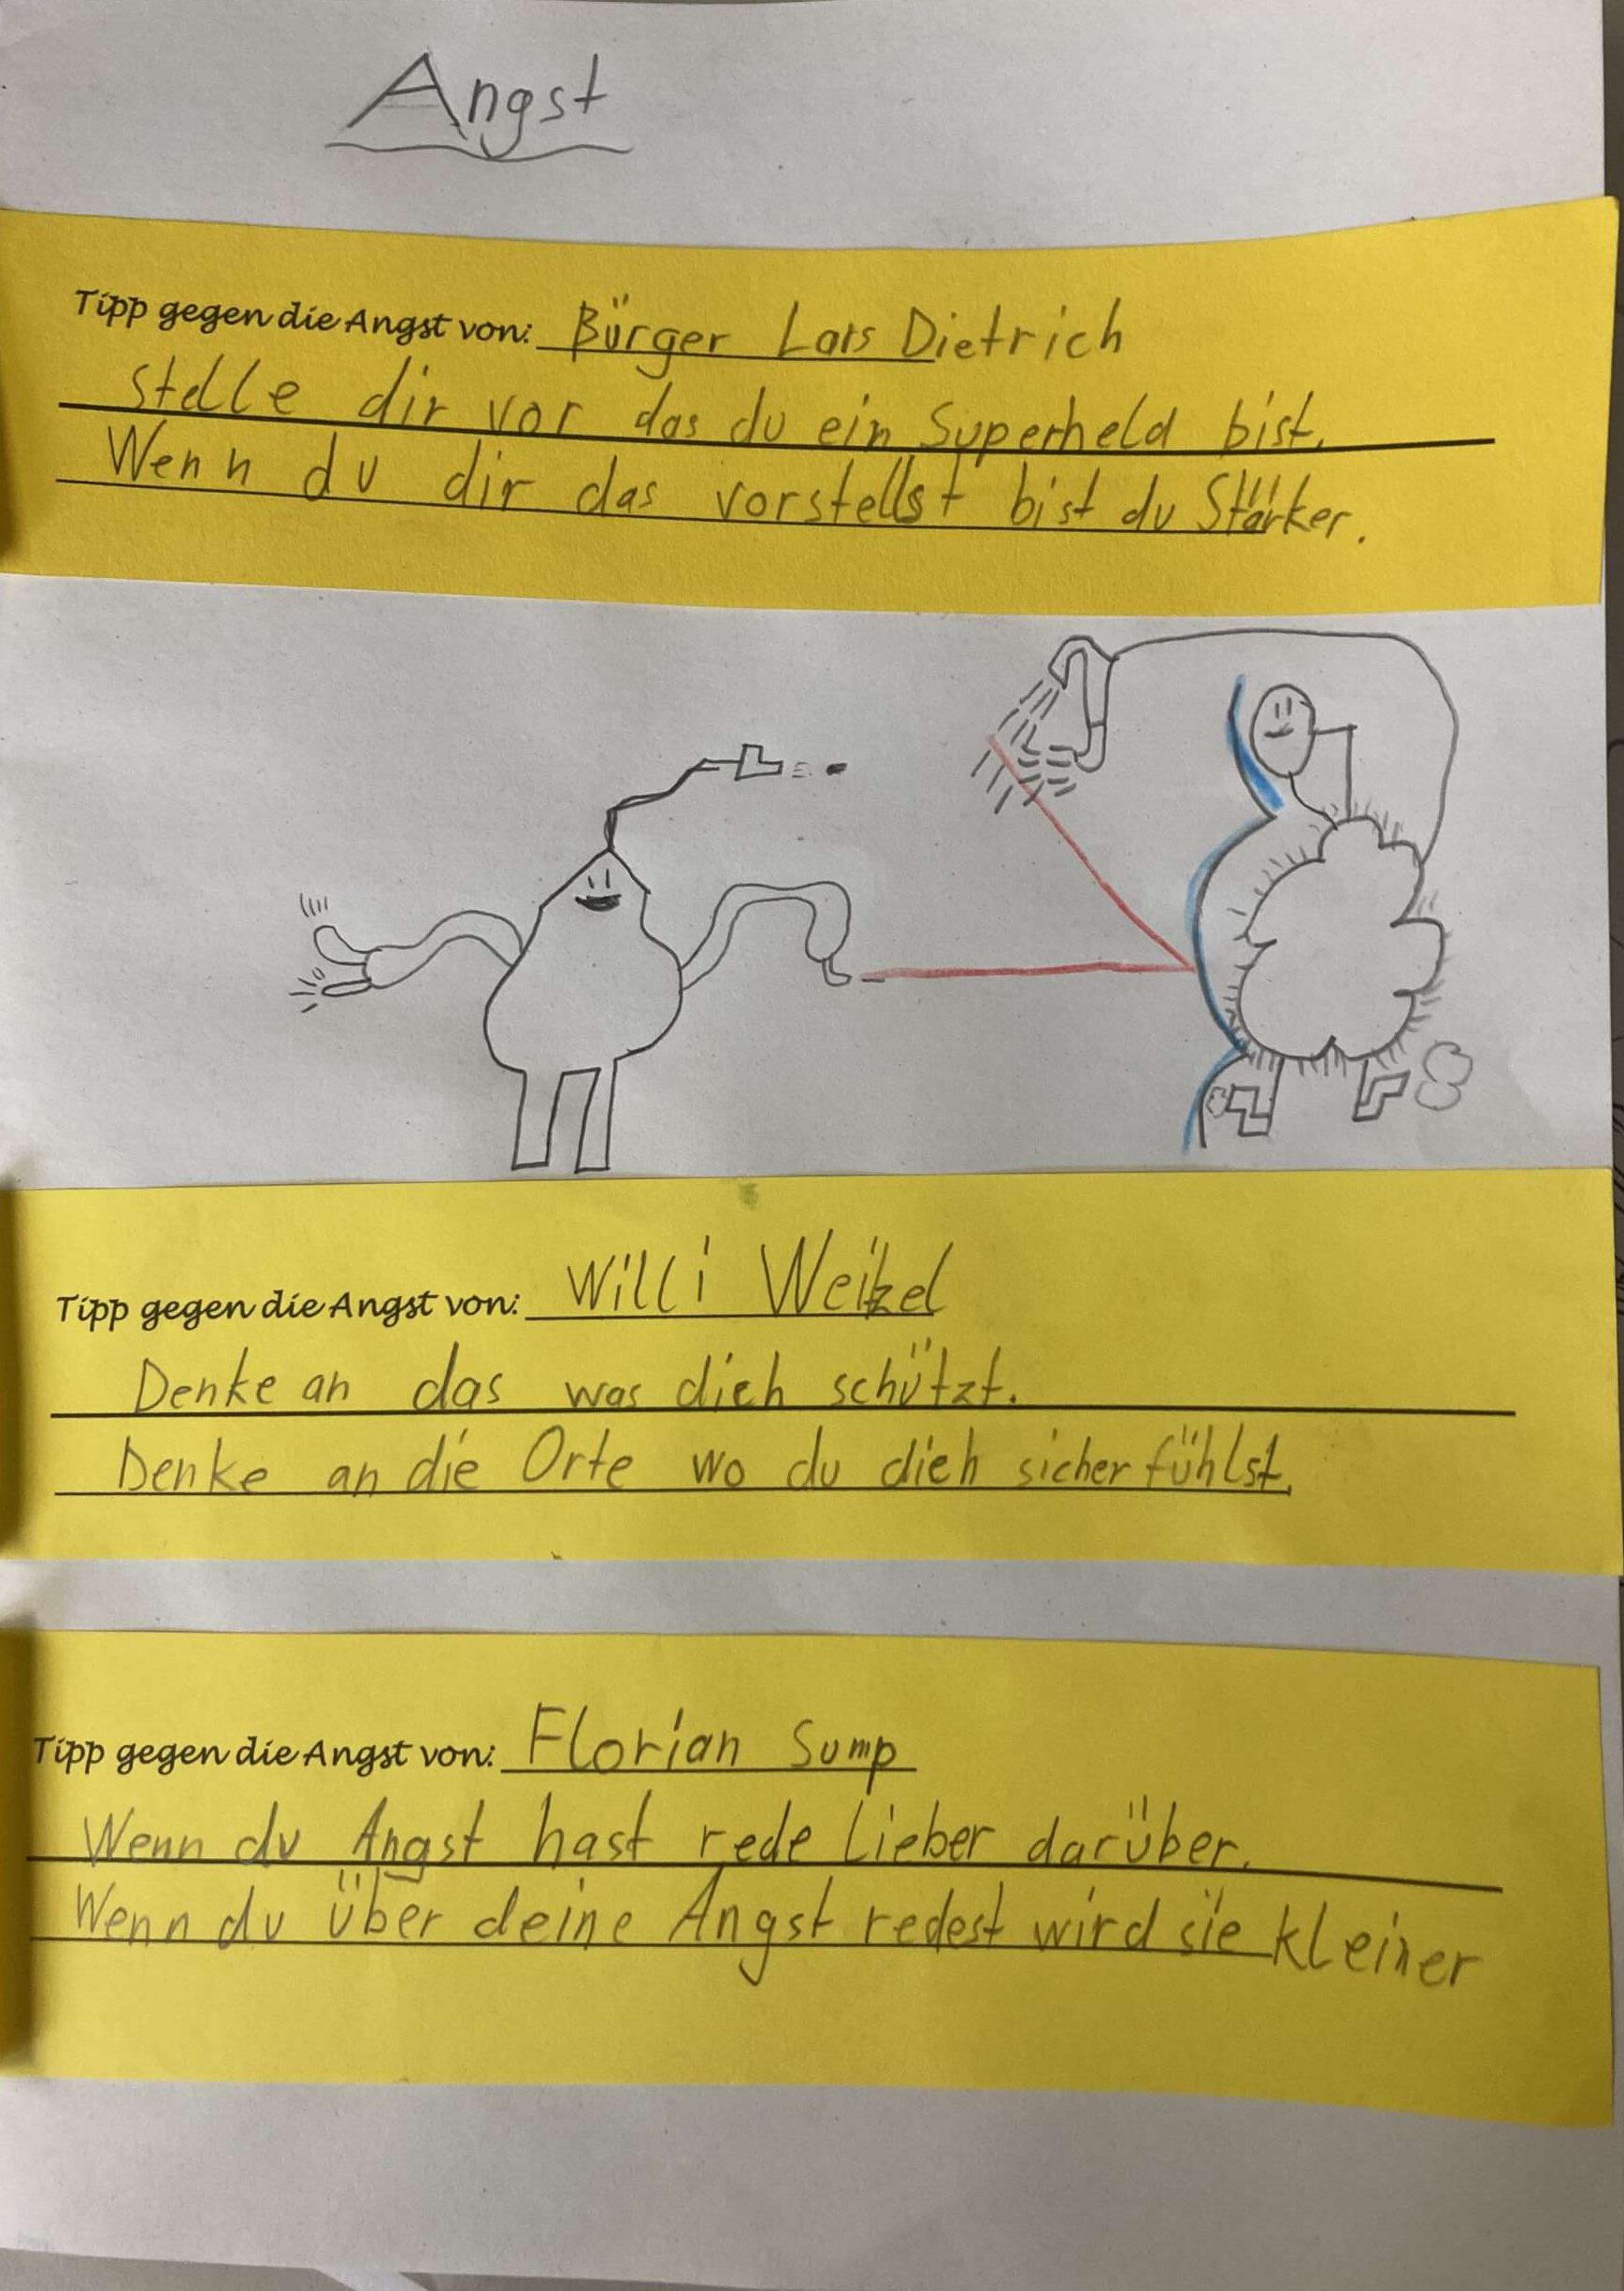 Angst
Tipp gegen die Angst von: Bürger Lars Dietrich
stelle dir vor das du ein Superheld bist.
Wenn du dir das vorstellst bist du Stärker.
Tipp gegen die Angst von: Willi Weitzel
Denke an das was dich schützt.
Denke an die Orte wo du dich sicher fühlst.
Tipp gegen die Angst von: Florian Sump
Wenn du Angst hast rede lieber darüber.
Wenn du über deine Angst redest wird sie kleiner